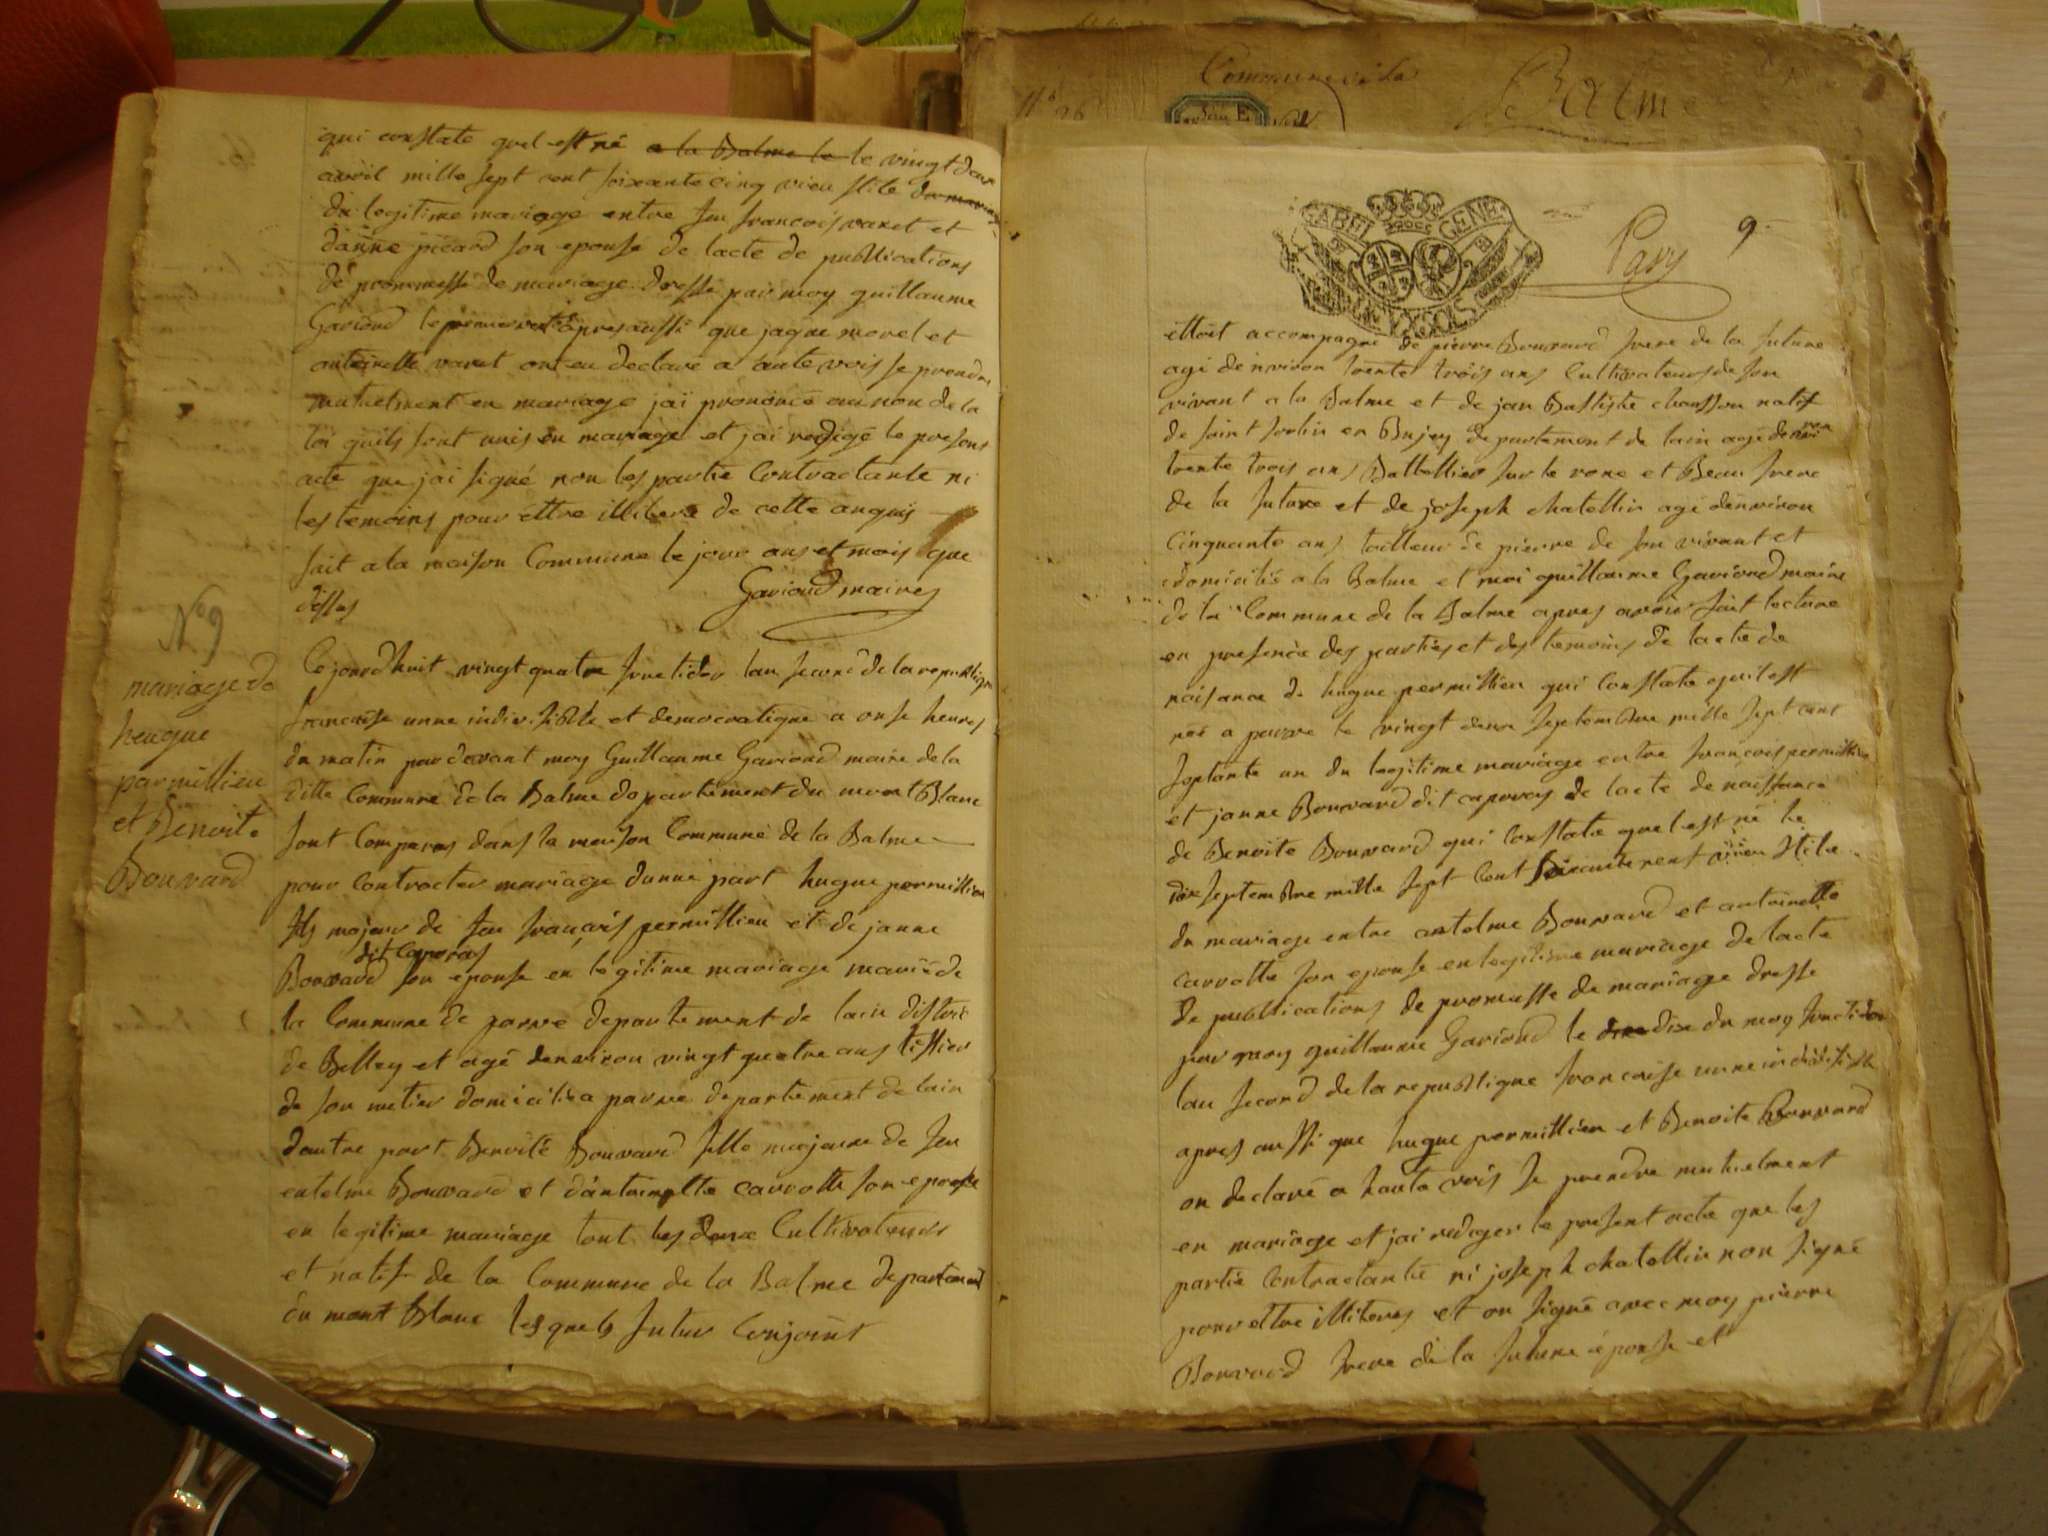 qui constate quel est né a la Balme le le vingt deux
avril mille sept cent soixante cinq vieu stile du mariage
du legitime mariage entre feu francois varet et
danne picard son epouse de lacte de publications
de prommesse de mariage dressé pair moy guillaume
Garioud le premier apres aussi que jaque morel et
antoinette varet on eu declaré a aute vois se prendre
mutuelment en mariage jai prononcé au non de la
loi quils sont unis en mariage et jai redigé le presens
acte que jai signé non les partie Contractante ni
les temoins pour ettre illiteré de cette anquis
fait a la maison Commune le jour ans et mois que
dessus Garioud maires
N° 9
mariage de
heugue
parmillieu
et Benoite
Bouvard
Cejourdhuit vingt quatre fructidor lan second de la republique
francaise unne indivisible et democratique a onse heures
du matin pardevant moy Guillaume Garioud maire de la
ditte Commune de la Balme departement du mont Blanc
sont Comparus dans la maison Commune de la Balme
pour Contracter mariage dunne part hugue permillieu
fils majeur de feu francois permillieu et de janne
dit Caporas
Bouvard son epouse en legitime mariage marié de
la Commune de parve departement de lain district
de Belley et agé denviron vingt quatre ans tissier
de son metier domicilié a parve departement de lain
dautre part Benoite Bouvard fille majeure de feu
entelme Bouvard et dantoinette carrotte son epouse
en legitime mariage tout les deux Cultivateurs
et natif de la Commune de la Balme departement
du mont Blanc lesquels futur Conjoint
Commune de la
Balme
N° 26
GABEL GENE
Pavy
9
ettoit accompagné de pierre Bouvard frere de la future
agé denviron trente trois ans Cultivateurs de son
vivant a la Balme et de jan Battiste chanssou natif
de saint sorlin en Bujey departement de lain agé denviron
trente trois ans Battellier sur le rone et Beau frere
de la future et de joseph chatellin agé denviron
Cinquante ans tailleur de pierre de son vivant et
domicilié a la Balme et moi guillaume Gariord maire
de la Commune de la Balme apres avoir fait lecture
en presence des parties et des temoins de lacte de
naisance de hugue permillieu qui Constate quil est
né a parve le vingt deux septembre mille sept cent
septante un du legitime mariage entre francois permillieu
et janne Bouvard dit caporas de lacte de naissance
de Benoite Bouvard qui Constate quel est né le
dix septembre mille sept Cent soixante neuf vieu stile
du mariage entre antelme Bouvard et antoinette
carrotte son epouse en legitime mariage de lacte
de publications de promesse de mariage dresse
par moy guillaume Gariord le dix du moy fructidor
lan second de la republique francaise unne indivisible
apres aussi que hugue permillieu et Benoite Bouvard
on declaré a haute vois se prendre mutuelment
en mariage et jai rediger le present acte que les
partie Contractante ni joseph chatellin non signé
pour ettre illiteres et on signé avec moy pierre
Bouvard frere de la future épouse et